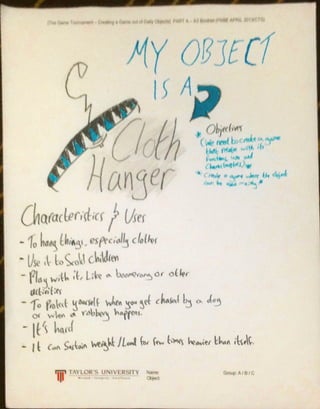 (The Game Tournament - Creating a Game out of Daily Objects) PART A - A3 Booklet (FNBE APRIL 2013/CTS)
MY OBJECT
IS A
Cloth
Hanger
Objectives
* (We need to create a game
that relate with its
function, use and
characteristics) *
* Create a game where the object
can be used mainly *
Characteristics & Uses
- To hang things, especially clothes
- Use it to Scold children
- Play with it, Like a boomerang or other
activities
- To Protect yourself when you get chased by a dog
or when a robbery happens.
- It's hard
- It can Sustain weight/Load for few times heavier than itself.
TAYLOR'S UNIVERSITY
Wisdom · Integrity · Excellence
Name:
Object:
Group: A / B / C